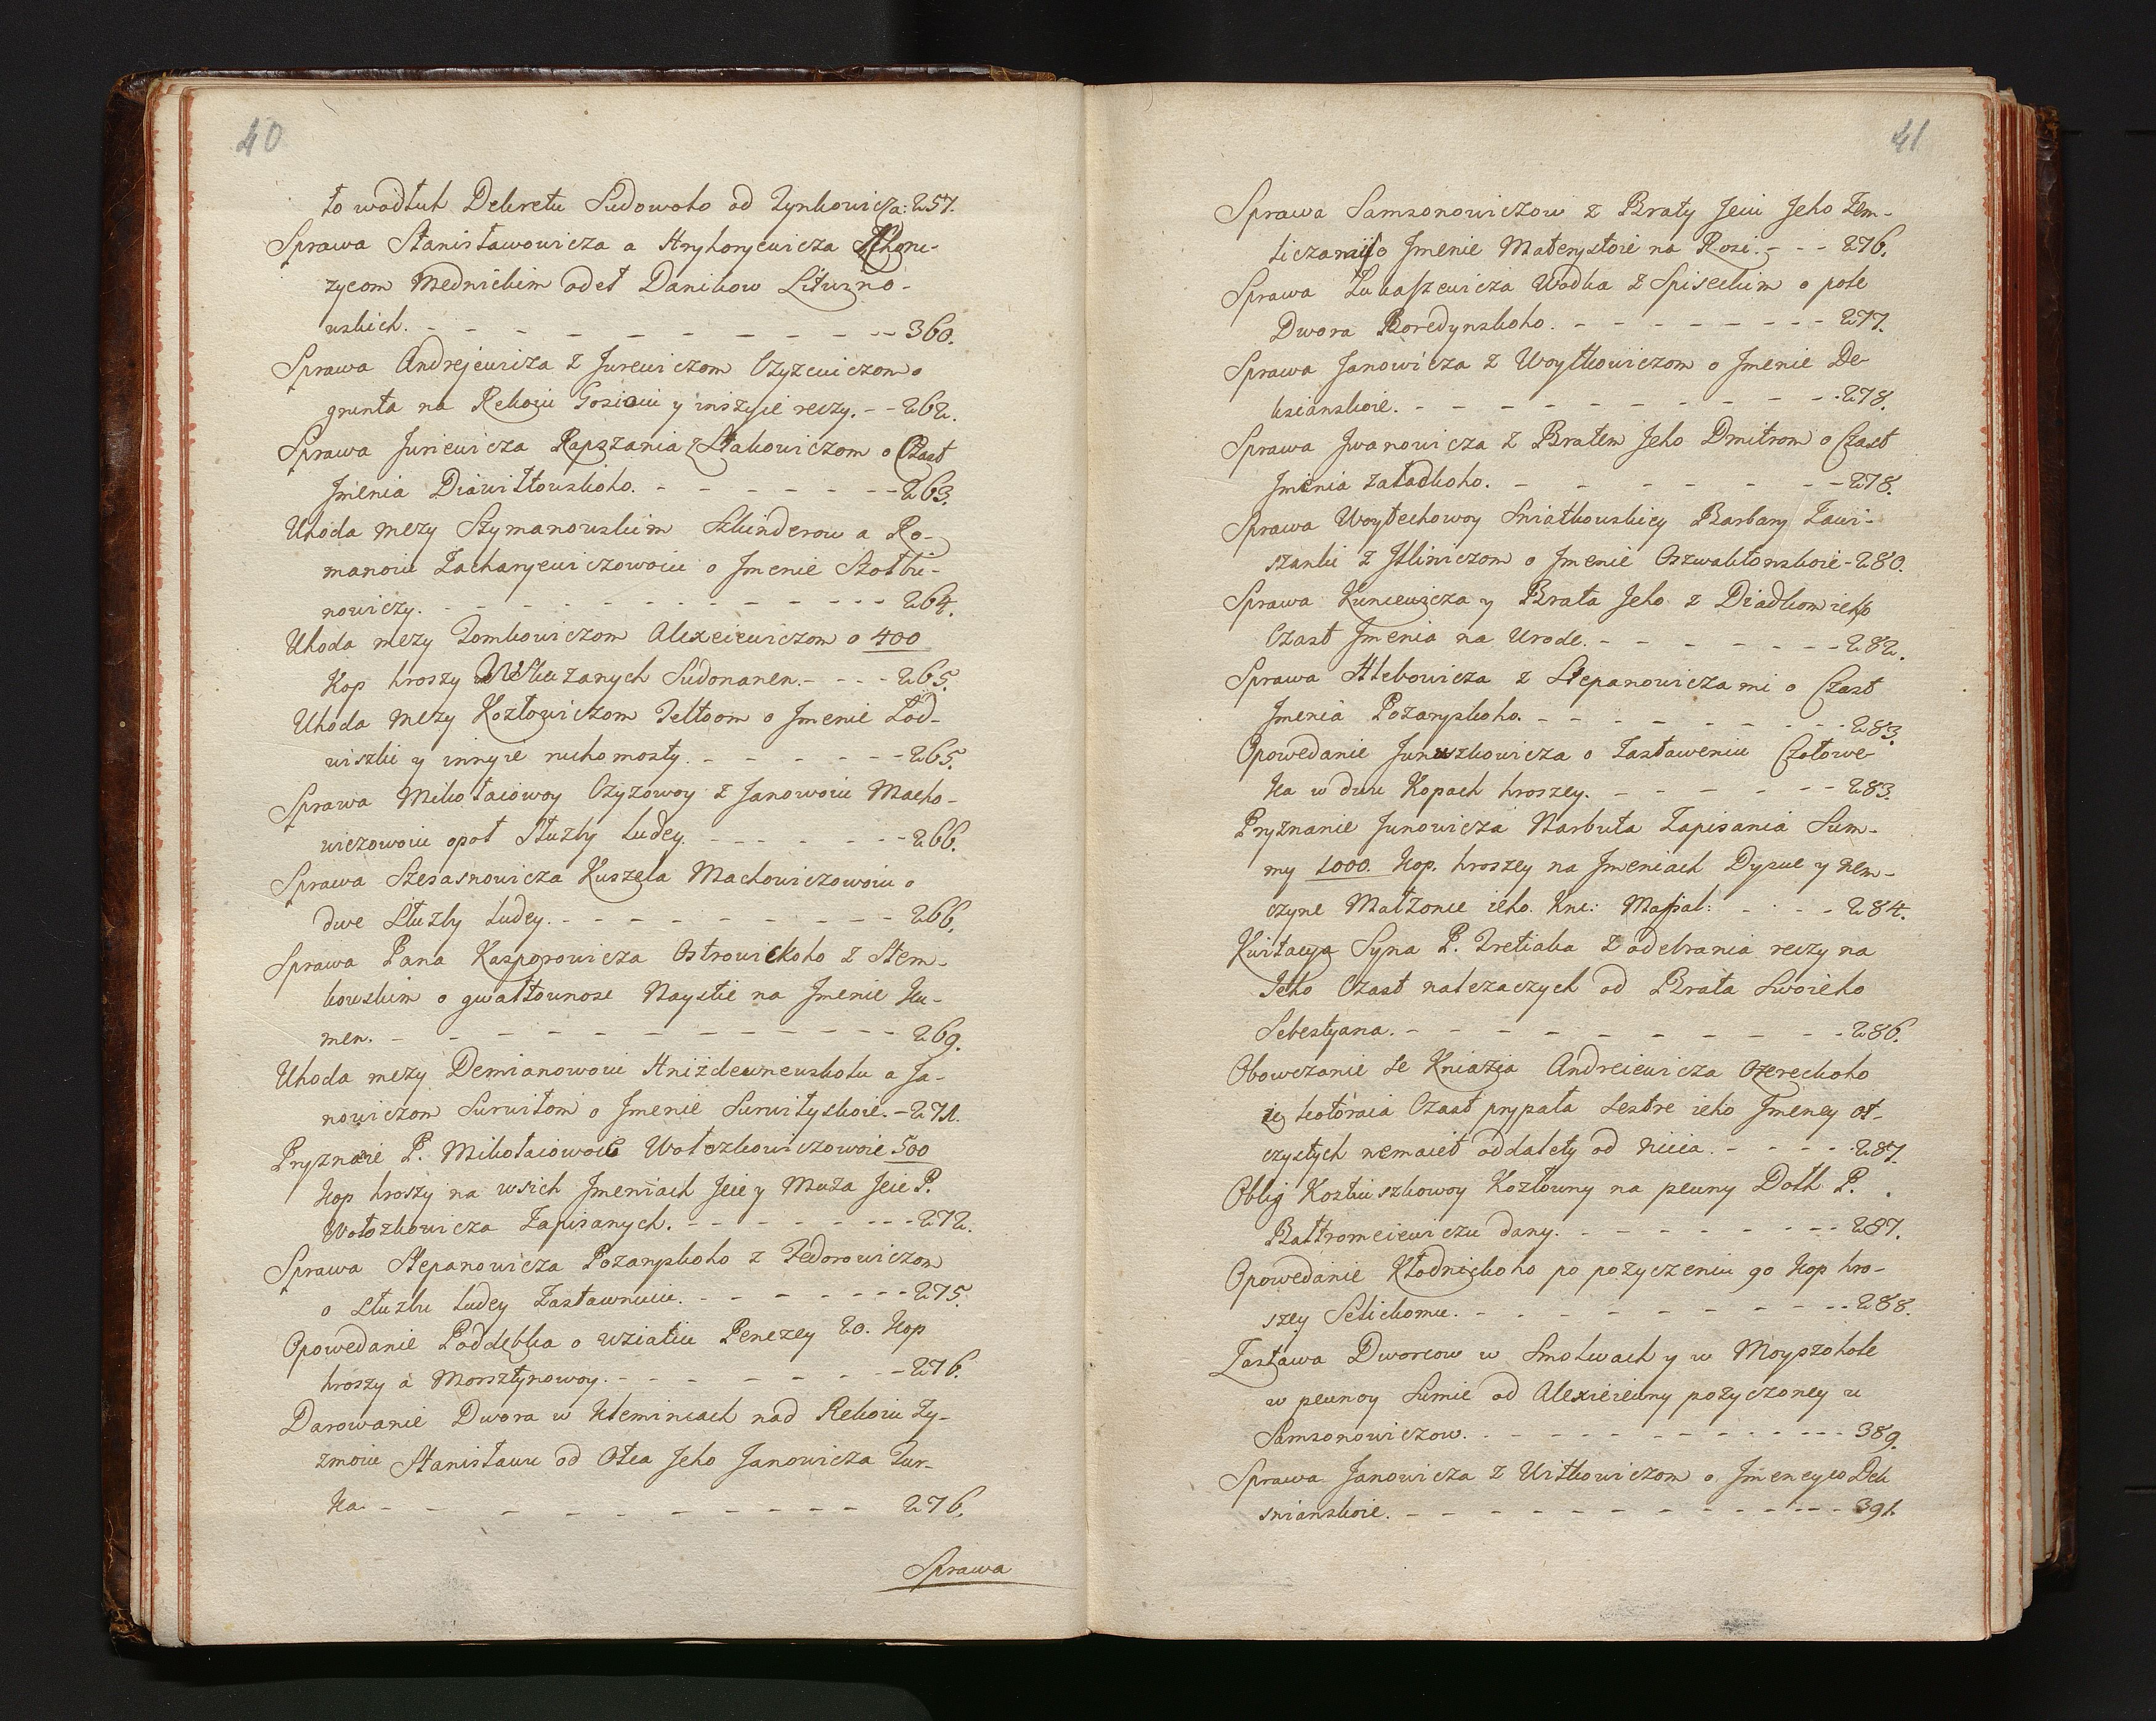 40
to wodłuh Dekretu Sudowoho od Zynkowicza: 257.
Sprawa Stanisławowicza a Hryhoryewicza
zycom Mednickim odet Danikow Lituzno-
wskich. - - - - - - - - - - 360.
Sprawa Andrejewicza z Jurewiczom Czyzewiczom o
grunta na Rekoiu Gosiciu y inszyie reczy. - - 262.
Sprawa Juriewicza Rapszania z Stakowiczom o Czast
Jmenia Diawiłtowskoho. - - - - - - - 263.
Uhoda mezy Szymanowskim Szkinderou a Ro-
manoiu Zacharyewiczowoiu o Jmenie Szołbi-
nowiczy. - - - - - - - - - - - 264.
Uhoda mezy Tomkowiczom Alexeiewiczom o 400
Kop hroszy Wskazanych Sudonanen. - - - - 265.
Uhoda mezy Kozłowiczom Jeltoom o Jmenie Łod-
wiszki y innyie ruchomosty. - - - - - - 265.
Sprawa Mikołaiowoy Czyzowoy z Janowoiu Macho-
wiczowoiu opoł Służby ludey. - - - - - - 266.
Sprawa Szesasnowicza Kuszela Machowiczowoiu o
dwe Służby ludey. - - - - - - - - 266.
Sprawa Pana Kasporowicza Ostrowickoho z Stem-
kowskim o gwałtownose Naystie na Jmenie Hu-
men. - - - - - - - - - - - - 269.
Uhoda mezy Demianowoiu Hnizdewnewskohu a Ja-
nowiczom Surwiłom o Jmenie Surwiłyskoie. - 271.
Pryznanie P. Mikołaiowoie Wołczkowiczowoie 500
Kop hroszy na wsich Jmeniach Jeie y Muża Jeie P.
Wołozkowicza Zapisanych. - - - - - - - 272.
Sprawa Stepanowicza Pozaryskoho z Fedorowiczom
o Służbu ludey Zastawnuiu. - - - - - - 275.
Opowedanie Poddębka o wziatiu Penezey 20. Kop
hroszy a Morsztynowoy. - - - - - - - 276.
Darowanie Dwora w Kleminiach nad Rekoiu Zy-
zmoiu Stanisławu od Otca Jeho Janowicza Zur-
ka. - - - - - - - - - - - 276.
Sprawa
41
Sprawa Samsonowiczow z Braty Jeiu Jeho Zem-
liczamy o Jmenie Materystoie na Rosi. - - - 276.
Sprawa Łukaszewicza Wodka z Spiseckim o pole
Dwora Boredynskoho. - - - - - - - - 277.
Sprawa Janowicza z Woytkowiczom o Jmenie De-
ksianskoie. - - - - - - - - - - 278.
Sprawa Jwanowicza z Bratem Jeho Dmitrom o Czast
Jmenia Załadkoho. - - - - - - - - 278.
Sprawa Woytechowoy Sniatkowskiey Barbary Zawi-
szanki z Jlliniczom o Jmenie Oszwaktonskoie - 280.
Sprawa Kuncewicza y Brata Jeho z Diadkom ieho
Czast Jmenia na Urode. - - - - - - - 282.
Sprawa Hlebowicza z Stepanowiczami o Czast
Jmenia Pozaryskoho. - - - - - - - - 283.
Opowedanie Junuszkowicza o Zastaweniu Czołowe-
ka w dwu Kopach hroszey. - - - - - - 283.
Pryznanie Junowicza Narbuta Zapisania Sum-
my 1000. Kop. hroszey na Jmeniach Dysue y Nem-
czyne Małzonce ieho. Kne: Massal: - - - 284.
Kwitacya Syna P. Tretiaka z odebrania reczy na
Jeho Czast należaczych od Brata Swoieho
Sebestyana. - - - - - - - - - - 286.
Obowezanie se Kniazia Andreiewicza Ozereckoho
iz kotoraia Czast prypała Sestre ieho Jmeney ot-
czystych nemaiet oddalety od nieia. - - - - 287.
Oblig Kozkuszkowoy Kozłowny na pewny Dołh P.
Bałtromeiewiczu dany. - - - - - - - 287.
Opowedanie Kłodnickoho po pozyczeniu 90 Kop hro-
szey Selickomu. - - - - - - - - - 288.
Zastawa Dworcow w Smolwach y w Moyszohole
w pewnoy Sumie od Alexieiewny pozyczoney u
Samsonowiczow. - - - - - - - - - 389.
Sprawa Janowicza z Witkowiczom o Jmeneyco Dek
snianskoie. - - - - - - - - - - 391.